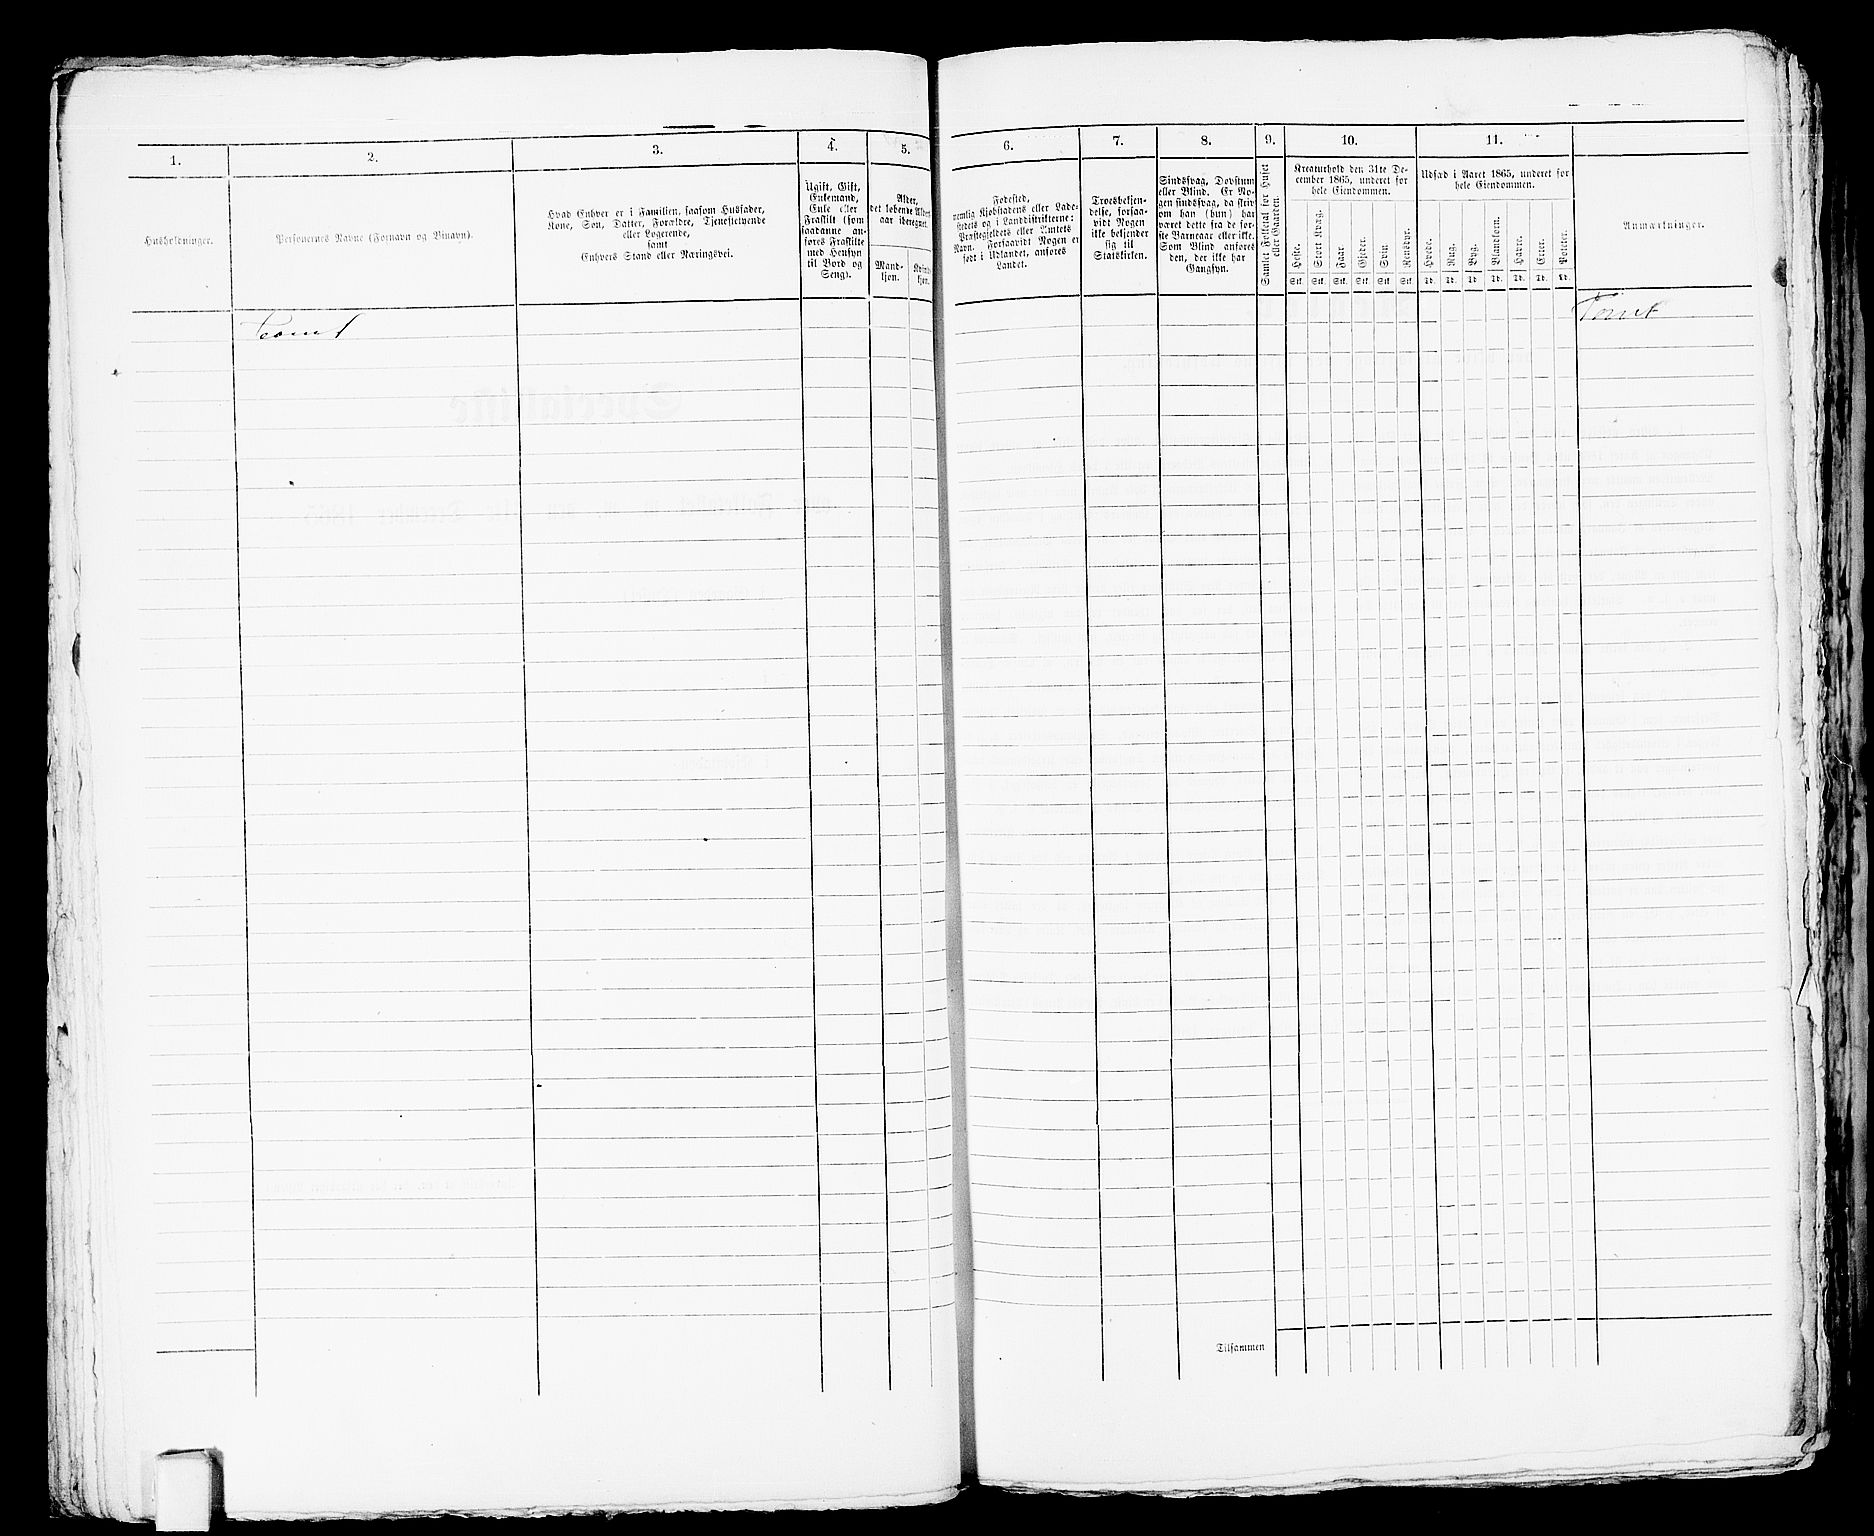 1.
2.
3.
4.
5.
Husholdninger.
Personernes Navne (Fornavn og Binavn).
Hvad Enhver er i Familien, saasom Husfader,
Kone, Søn, Datter, Forældre, Tjenestetyende
eller Logerende,
samt
Enhvers Stand eller Næringsvei.
Ugift, Gift,
Enkemand,
Enke eller
Fraskilt (som
saadanne an-
føres Fraskilte
med Hensyn
til Bord og
Seng).
Alder,
det løbende Alders-
aar iberegnet.
Mand-
kjøn.
Kvinde-
kjøn.
Tomt
6.
7.
8.
9.
10.
11.
Fødested,
nemlig Kjøbstadens eller Lade-
stedets og i Landdistrikterne:
Præstegjeldets eller Amtets
Navn. Forsaavidt Nogen er
født i Udlandet, anføres
Landet.
Troesbekjen-
delse, forsaa-
vidt Nogen
ikke bekjender
sig til
Statskirken.
Sindssvag, Døvstum
eller Blind. Er No-
gen sindssvag, da skriv
om han (hun) har
været dette fra de før-
ste Barneaar eller ikke.
Som Blind anføres
den, der ikke har
Gangsyn.
Samlet Folketal for Huset
eller Gaarden.
Kreaturhold den 31te De-
cember 1865, underet for
hele Eiendommen.
Heste.
Stort Kvæg.
Faar.
Gjeder.
Svin.
Rensdyr.
Stk. Stk. Stk. Stk. Stk. Stk.
Udsæd i Aaret 1865, underet for
hele Eiendommen.
Hvede.
Rug.
Byg.
Blandkorn.
Havre.
Erter.
Poteter.
Td. Td. Td. Td. Td. Td. Td.
Anmærkninger.
Tomt
Tilsammen